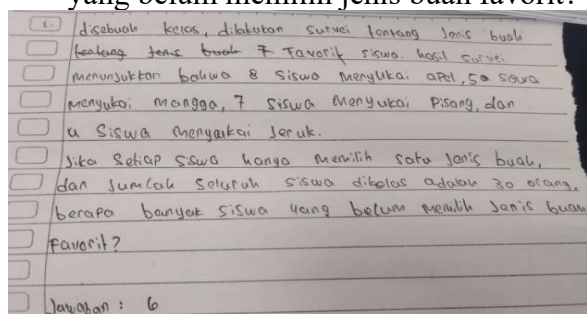 yang belum memilih jenis buah favorit?
1. disebuah kelas, dilakukan survei tentang Jenis buah
tentang Jenis buah Favorit siswa. hasil survei
menunjukkan bahwa 8 siswa menyukai apel, siswa
menyukai mangga, 7 siswa menyukai Pisang, dan
4 siswa menyukai Jeruk.
Jika Setiap siswa hanya memilih satu Jenis buah,
dan Jumlah Seluruh siswa dikelas adalah 30 orang,
berapa banyak siswa yang belum memilih Jenis buah
Favorit?
Jawaban : 6